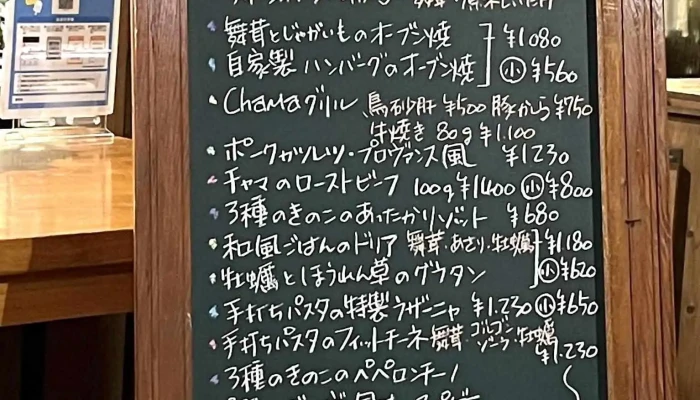 舞茸とじゃがいものオーブン焼 ¥1080
自家製ハンバーグのオーブン焼 小 ¥560
Chamaグリル 鳥砂肝 ¥500 豚から ¥750
牛焼き 80g ¥1.100
ポークカツレツ・プロヴァンス風 ¥1230
チャマのローストビーフ 100g ¥1400 小 ¥800
3種のきのこのあったかリゾット ¥680
和風ごはんのドリア 舞茸・あさり・牡蠣 ¥1.180
牡蠣とほうれん草のグラタン 小 ¥620
手打ちパスタの特製ラザーニャ ¥1.230 小 ¥650
手打ちパスタのフィットチーネ 舞茸・ゴルゴンゾーラ・牡蠣
¥1.230
3種のきのこのペペロンチーノ